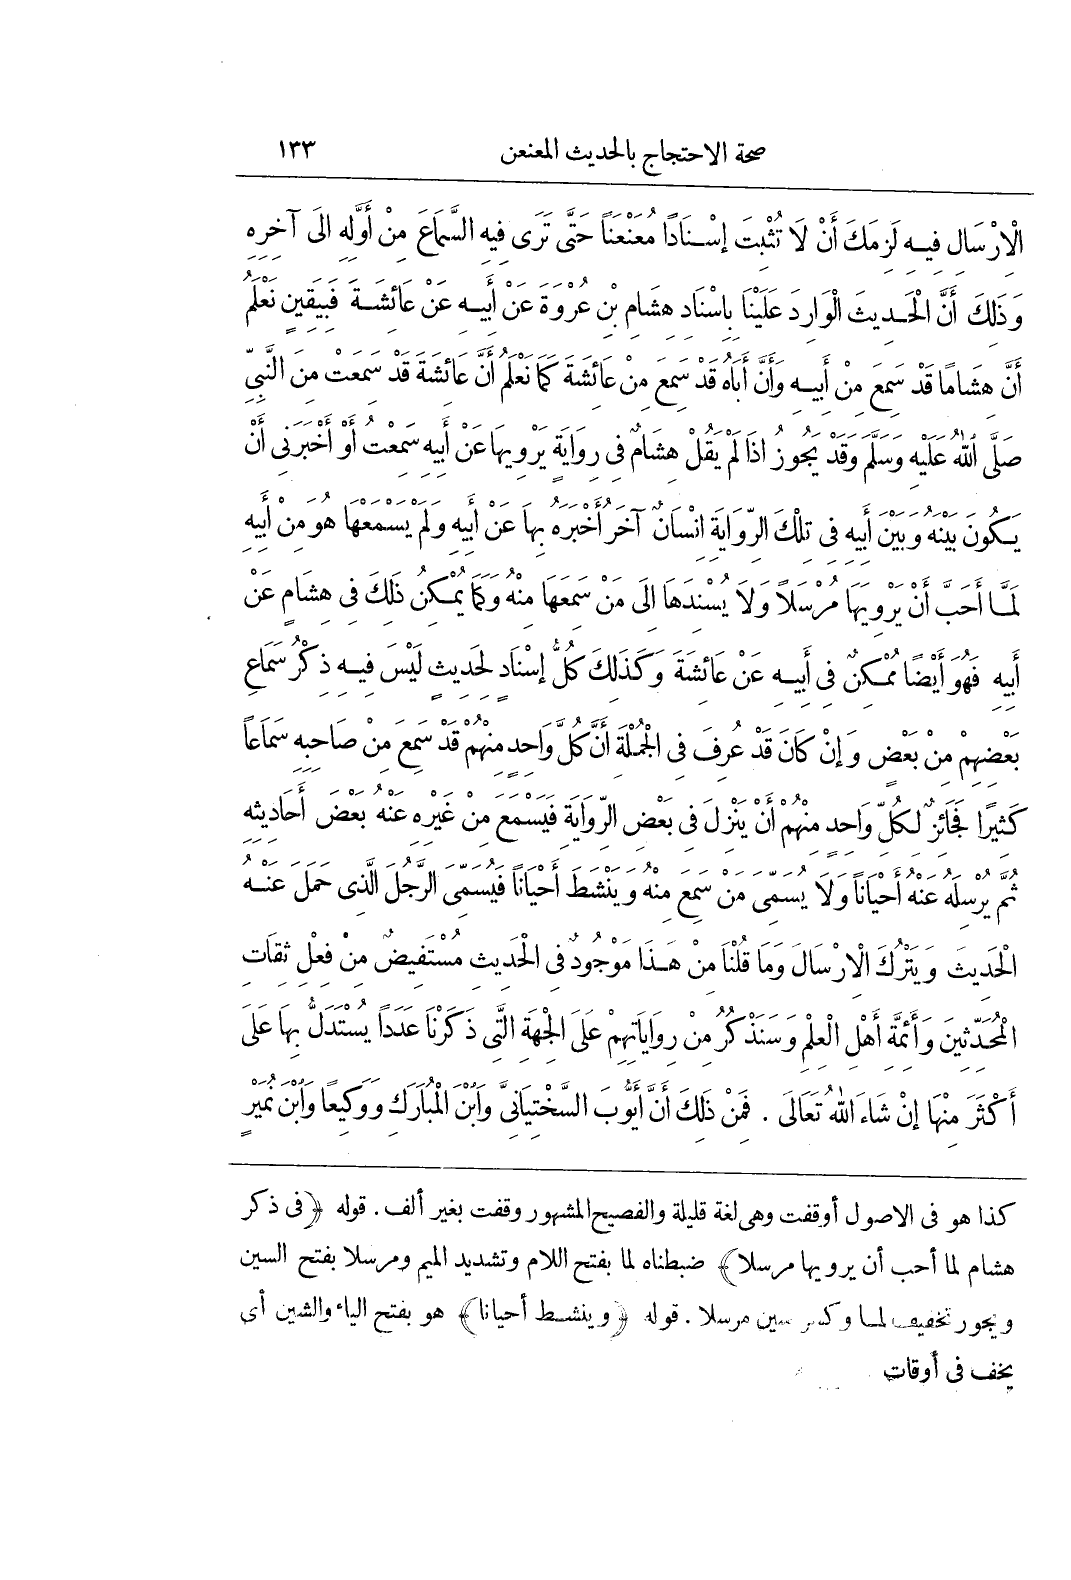 صحة الاحتجاج بالحديث المعنعن ١٣٣
الْاِرْسَالِ فِيهِ لَزِمَكَ أَنْ لَا تُثْبِتَ إِسْنَادًا مُعَنْعَنًا حَتَّى تَرَى فِيهِ السَّمَاعَ مِنْ أَوَّلِهِ اِلَى آخِرِهِ
وَذَلِكَ أَنَّ الْحَدِيثَ الْوَارِدَ عَلَيْنَا بِاسْنَادِ هِشَامِ بْنِ عُرْوَةَ عَنْ أَبِيهِ عَنْ عَائِشَةَ فَبِيَقِينٍ نَعْلَمُ
أَنَّ هِشَامًا قَدْ سَمِعَ مِنْ أَبِيهِ وَأَنَّ أَبَاهُ قَدْ سَمِعَ مِنْ عَائِشَةَ كَمَا نَعْلَمُ أَنَّ عَائِشَةَ قَدْ سَمِعَتْ مِنَ النَّبِيِّ
صَلَّى اللهُ عَلَيْهِ وَسَلَّمَ وَقَدْ يَجُوزُ اذَا لَمْ يَقُلْ هِشَامٌ فِى رِوَايَةٍ يَرْوِيهَا عَنْ أَبِيهِ سَمِعْتُ أَوْ أَخْبَرَنِى أَنْ
يَكُونَ بَيْنَهُ وَبَيْنَ أَبِيهِ فِى تِلْكَ الرِّوَايَةِ انْسَانٌ آخَرُ أَخْبَرَهُ بِهَا عَنْ أَبِيهِ وَلَمْ يَسْمَعْهَا هُوَ مِنْ أَبِيهِ
لَمَّا أَحَبَّ أَنْ يَرْوِيَهَا مُرْسَلًا وَلَا يُسْنِدَهَا اِلَى مَنْ سَمِعَهَا مِنْهُ وَكَمَا يُمْكِنُ ذَلِكَ فِى هِشَامٍ عَنْ
أَبِيهِ فَهُوَ أَيْضًا مُمْكِنٌ فِى أَبِيهِ عَنْ عَائِشَةَ وَكَذَلِكَ كُلُّ إِسْنَادٍ لِحَدِيثٍ لَيْسَ فِيهِ ذِكْرُ سَمَاعِ
بَعْضِهِمْ مِنْ بَعْضٍ وَإِنْ كَانَ قَدْ عُرِفَ فِى الْجُمْلَةِ أَنَّ كُلَّ وَاحِدٍ مِنْهُمْ قَدْ سَمِعَ مِنْ صَاحِبِهِ سَمَاعًا
كَثِيرًا فَجَائِزٌ لِكُلِّ وَاحِدٍ مِنْهُمْ أَنْ يَنْزِلَ فِى بَعْضِ الرِّوَايَةِ فَيَسْمَعَ مِنْ غَيْرِهِ عَنْهُ بَعْضَ أَحَادِيثِهِ
ثُمَّ يُرْسِلَهُ عَنْهُ أَحْيَانًا وَلَا يُسَمِّىَ مَنْ سَمِعَ مِنْهُ وَيَنْشَطَ أَحْيَانًا فَيُسَمِّىَ الرَّجُلَ الَّذِى حَمَلَ عَنْهُ
الْحَدِيثَ وَيَتْرُكَ الْاِرْسَالَ وَمَا قُلْنَا مِنْ هَذَا مَوْجُودٌ فِى الْحَدِيثِ مُسْتَفِيضٌ مِنْ فِعْلِ ثِقَاتِ
الْمُحَدِّثِينَ وَأَئِمَّةِ أَهْلِ الْعِلْمِ وَسَنَذْكُرُ مِنْ رِوَايَاتِهِمْ عَلَى الْجِهَةِ الَّتِى ذَكَرْنَا عَدَدًا يُسْتَدَلُّ بِهَا عَلَى
أَكْثَرَ مِنْهَا إِنْ شَاءَ اللهُ تَعَالَى . فَمِنْ ذَلِكَ أَنَّ أَيُّوبَ السَّخْتِيَانِىَّ وَابْنَ الْمُبَارَكِ وَوَكِيعًا وَابْنَ نُمَيْرٍ
كذا هو فى الاصول أوقفت وهى لغة قليلة والفصيح المشهور وقفت بغير ألف . قوله ﴿فى ذكر
هشام لما أحب أن يرويها مرسلا﴾ ضبطناه لما بفتح اللام وتشديد الميم ومرسلا بفتح السين
ويجوز تخفيف لما وكسر سين مرسلا . قوله ﴿وينشط أحيانا﴾ هو بفتح الياء والشين أى
يخف فى أوقات